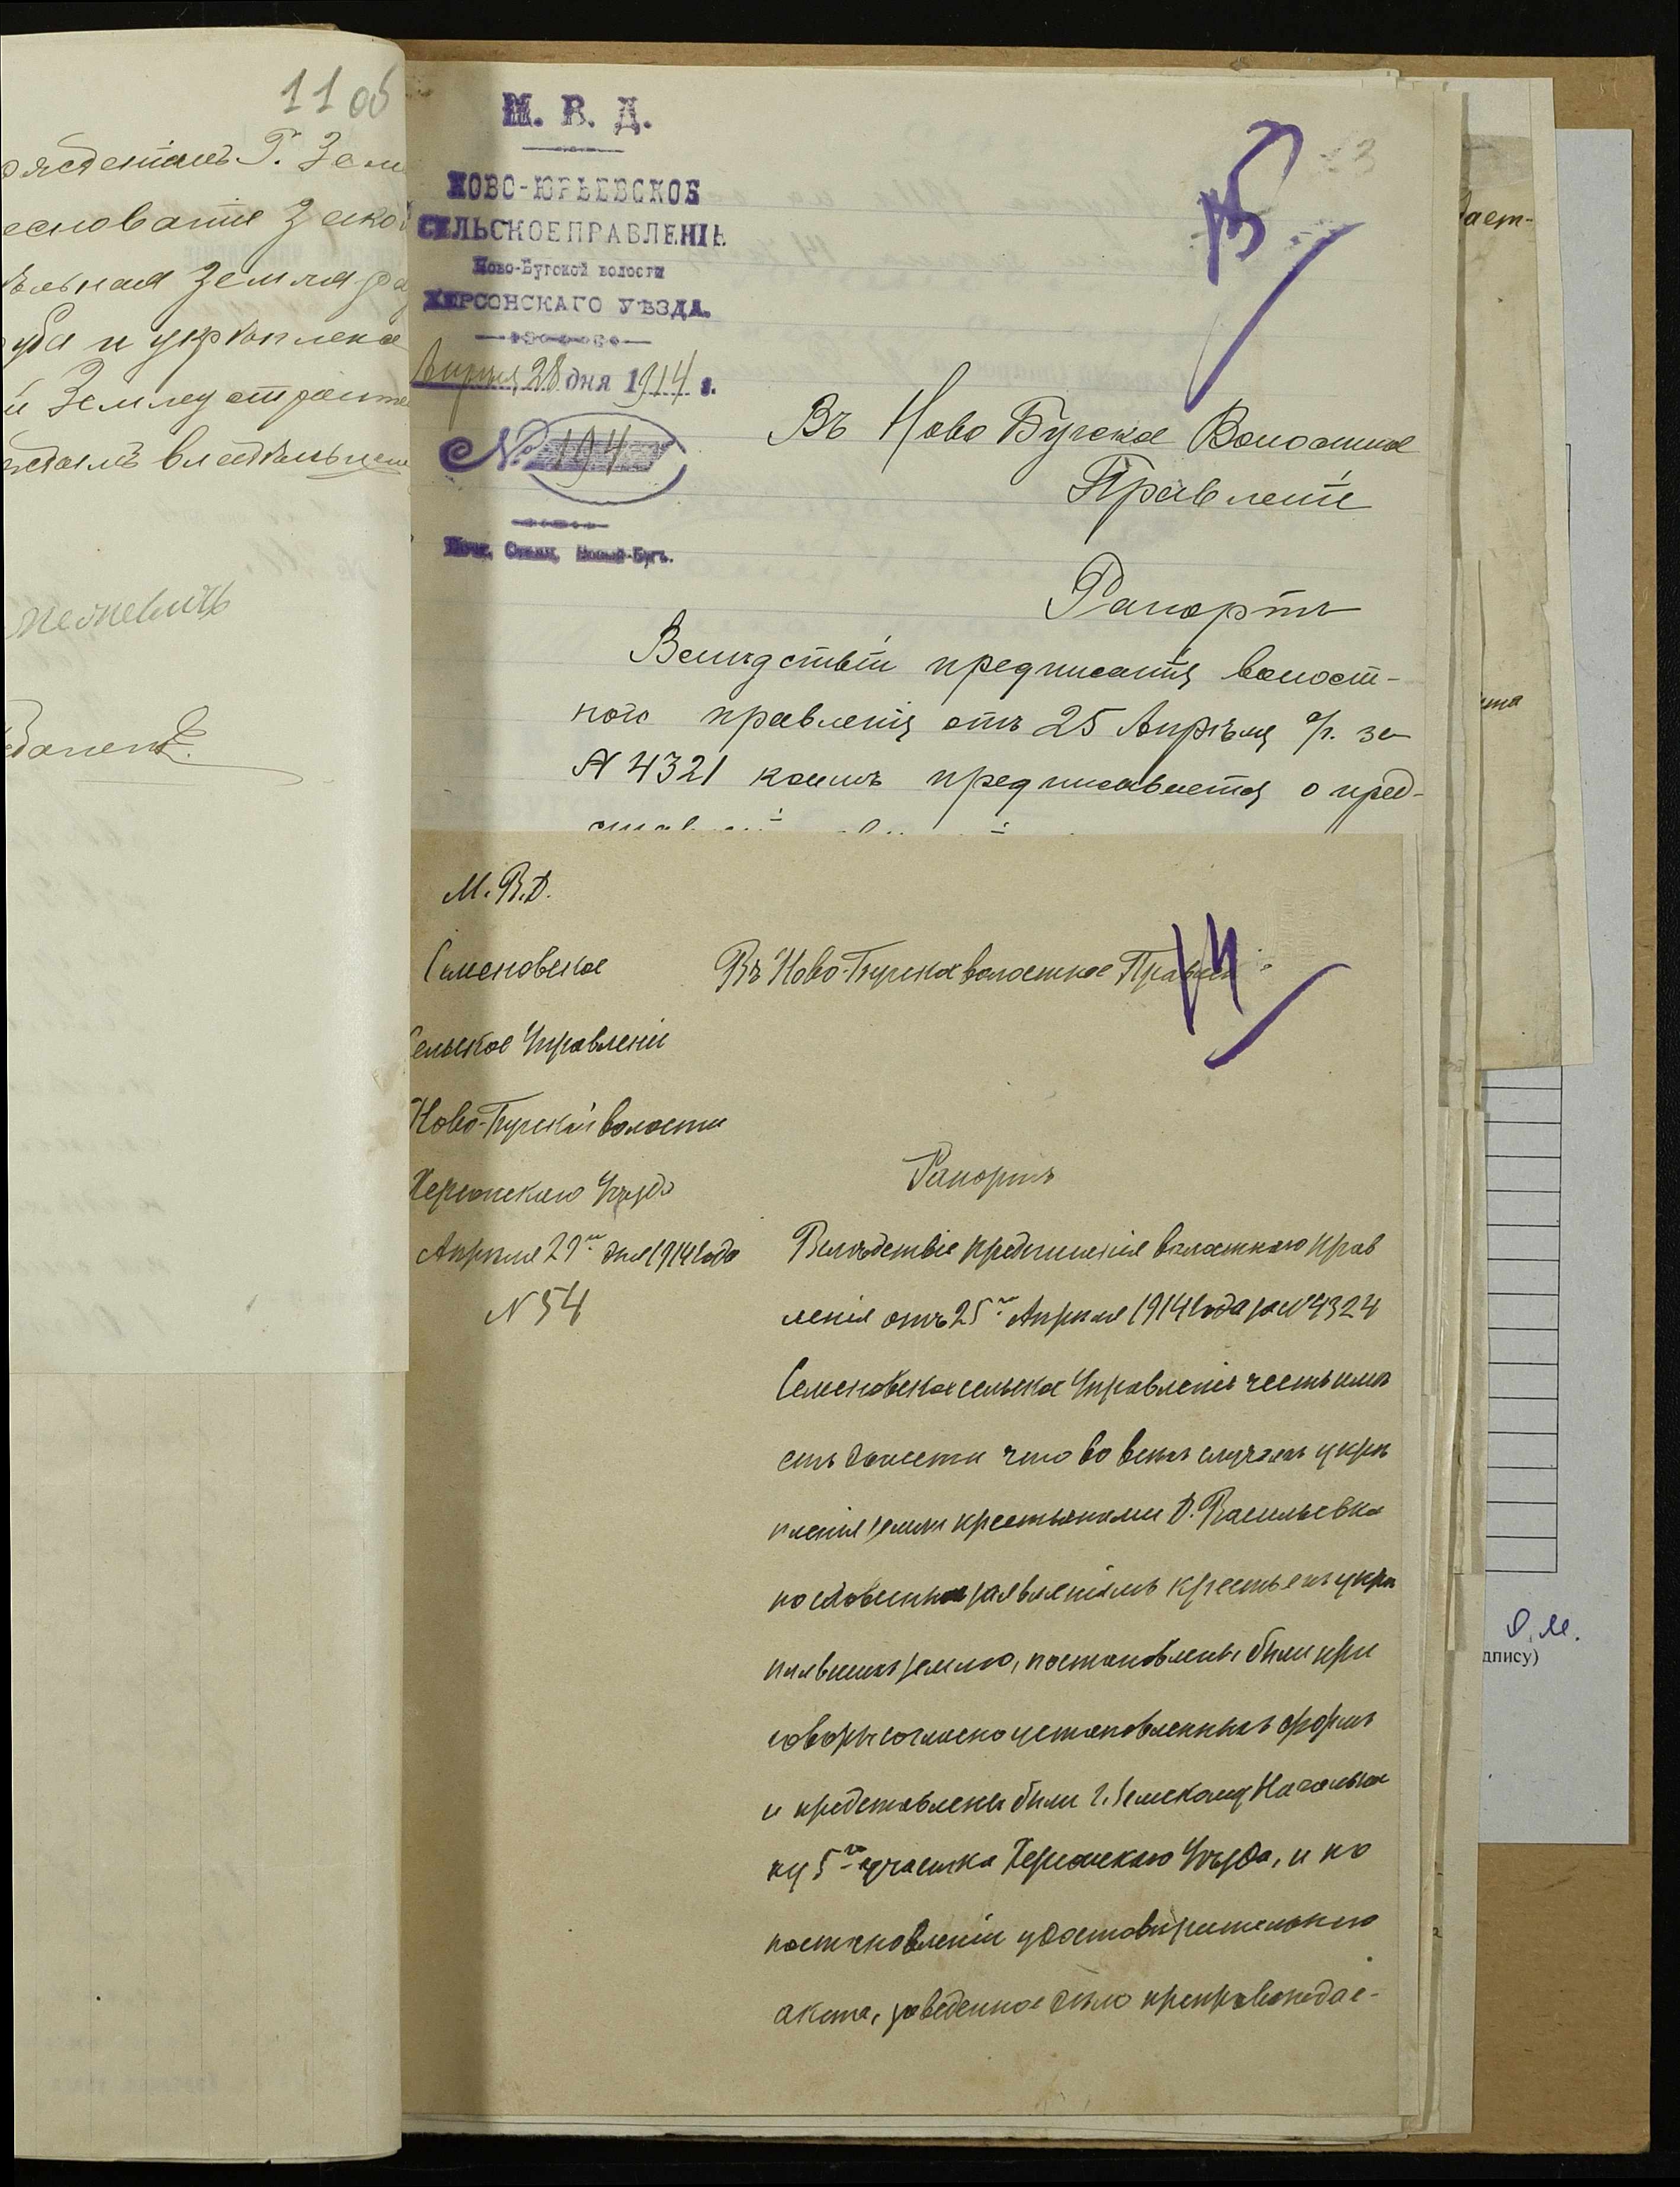 11 об
Г. Зем
основанiе Зако
ьльная Земля
уба и укрѣплена
й Землеустроите
владѣльцем
М. В. Д.
НОВО-ЮРЬЕВСКОЕ
СЕЛЬСКОЕ ПРАВЛЕНIЕ
Ново-Бугской волости
ХЕРСОНСКАГО УѢЗДА.
Апрѣля 28 дня 1914 г.
№ 194
Почт. Стан. Новый-Бугъ.
13
15
Въ Ново Бугское Волостное
Правленiе
Рапортъ
Вслѣдствiи предписанiя волост-
ного правленiя отъ 25 Апрѣля с/г. за
№ 4321 коимъ предписывается о пред-
М.В.Д.
Семеновское
Сельское Управленiе
Ново-Бугской волости
Херсонскаго Уѣзда
Апрѣля 29го дня 1914 года
№ 54
14
Въ Ново-Бугское волостное Правлен
Рапортъ
Вслѣдствiе предписанiя волостного прав
ленiя отъ 25го Апрѣля 1914 года за № 4324
Семеновское сельское Управленiе честь имѣ
етъ донести что во всѣхъ случаяхъ укрѣ
пленiя земли крестьянами д. Васильевка
по словеснымъ заявленiямъ крестьянъ укрѣ
пившихъ землю, постановлены были при
говоры согласно установленныхъ формъ
и представлены были г. Земскому Начальни
ку 5го участка Херсонскаго Уѣзда, и по
постановленiи удостовѣрительного
акта, заведенное дѣло препровождае-
дает-
О.М.
дпису)